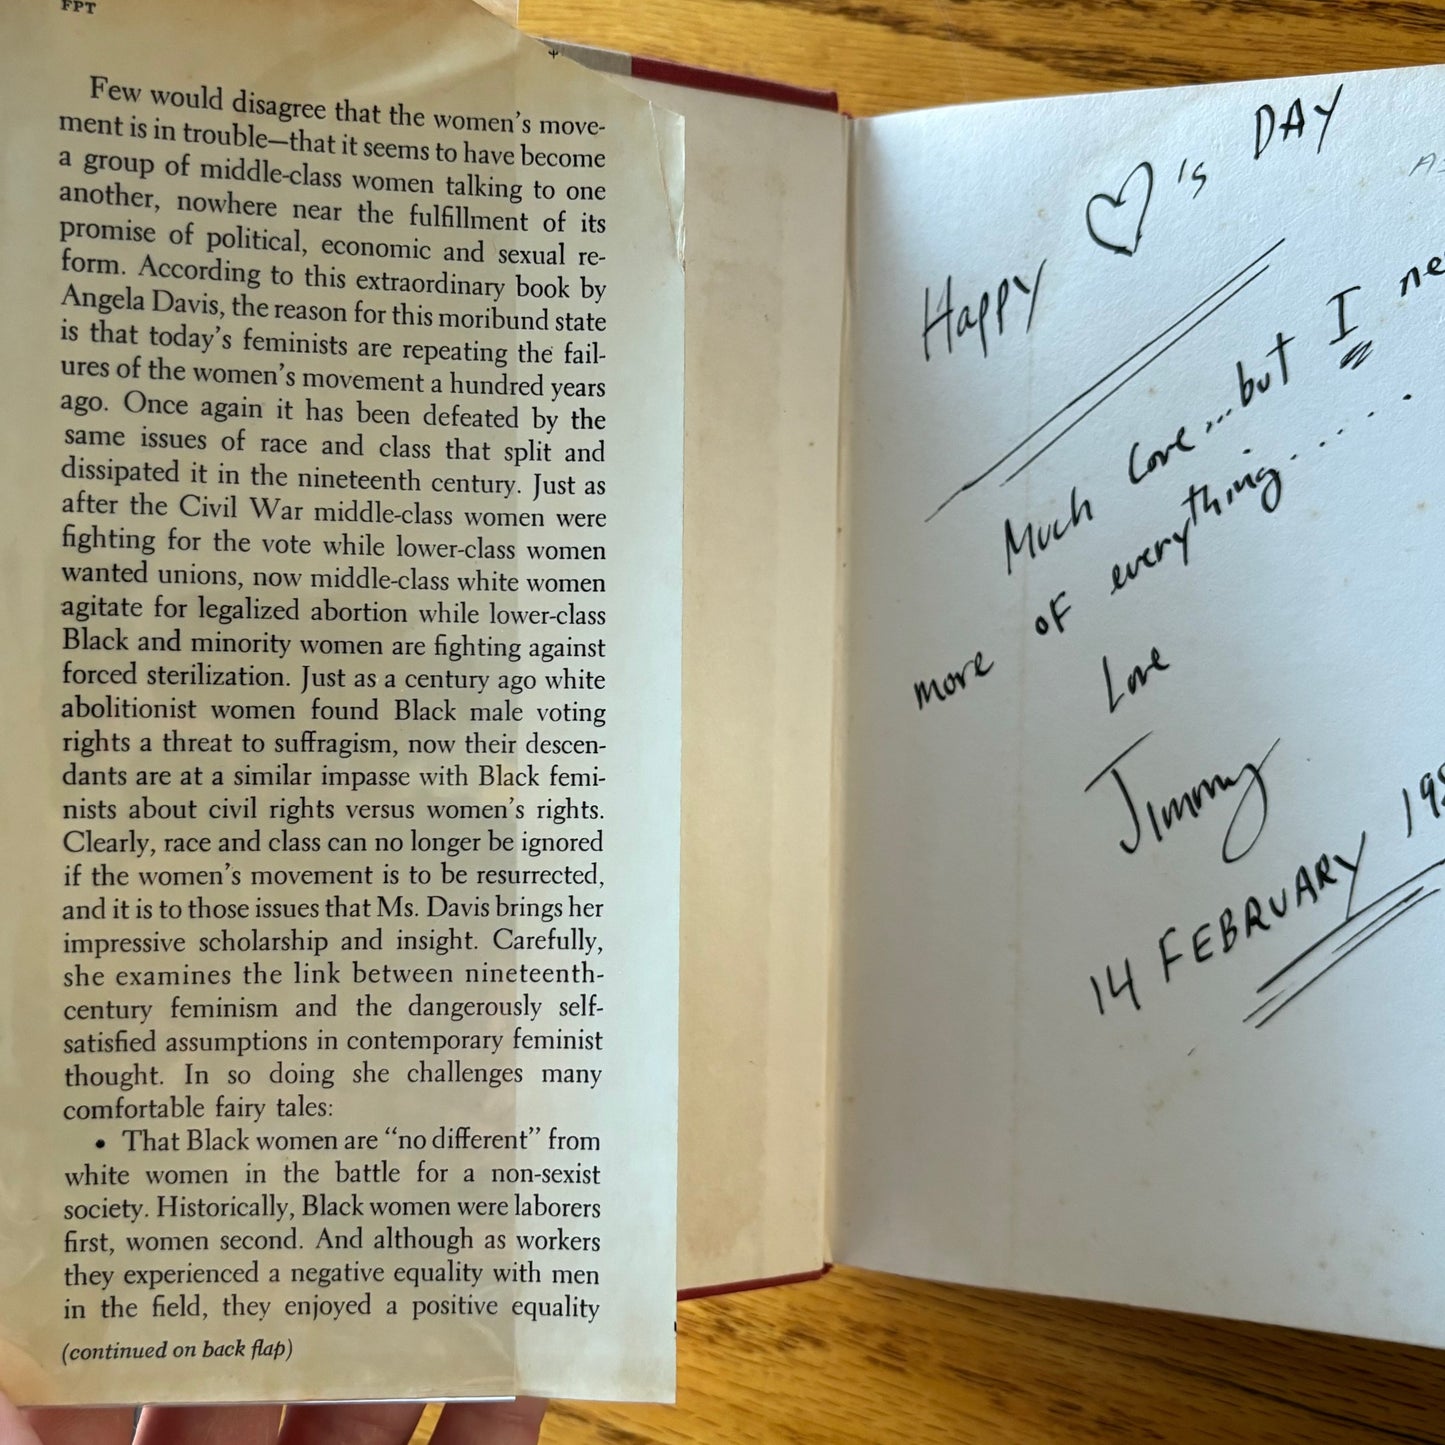 FPT
Few would disagree that the women's move-
ment is in trouble—that it seems to have become
a group of middle-class women talking to one
another, nowhere near the fulfillment of its
promise of political, economic and sexual re-
form. According to this extraordinary book by
Angela Davis, the reason for this moribund state
is that today's feminists are repeating the fail-
ures of the women's movement a hundred years
ago. Once again it has been defeated by the
same issues of race and class that split and
dissipated it in the nineteenth century. Just as
after the Civil War middle-class women were
fighting for the vote while lower-class women
wanted unions, now middle-class white women
agitate for legalized abortion while lower-class
Black and minority women are fighting against
forced sterilization. Just as a century ago white
abolitionist women found Black male voting
rights a threat to suffragism, now their descen-
dants are at a similar impasse with Black femi-
nists about civil rights versus women's rights.
Clearly, race and class can no longer be ignored
if the women's movement is to be resurrected,
and it is to those issues that Ms. Davis brings her
impressive scholarship and insight. Carefully,
she examines the link between nineteenth-
century feminism and the dangerously self-
satisfied assumptions in contemporary feminist
thought. In so doing she challenges many
comfortable fairy tales:
• That Black women are “no different” from
white women in the battle for a non-sexist
society. Historically, Black women were laborers
first, women second. And although as workers
they experienced a negative equality with men
in the field, they enjoyed a positive equality
(continued on back flap)
Happy ♡'s DAY
Much Love...but I ne
more of everything.....
Love
Jimmy
14 FEBRUARY 19